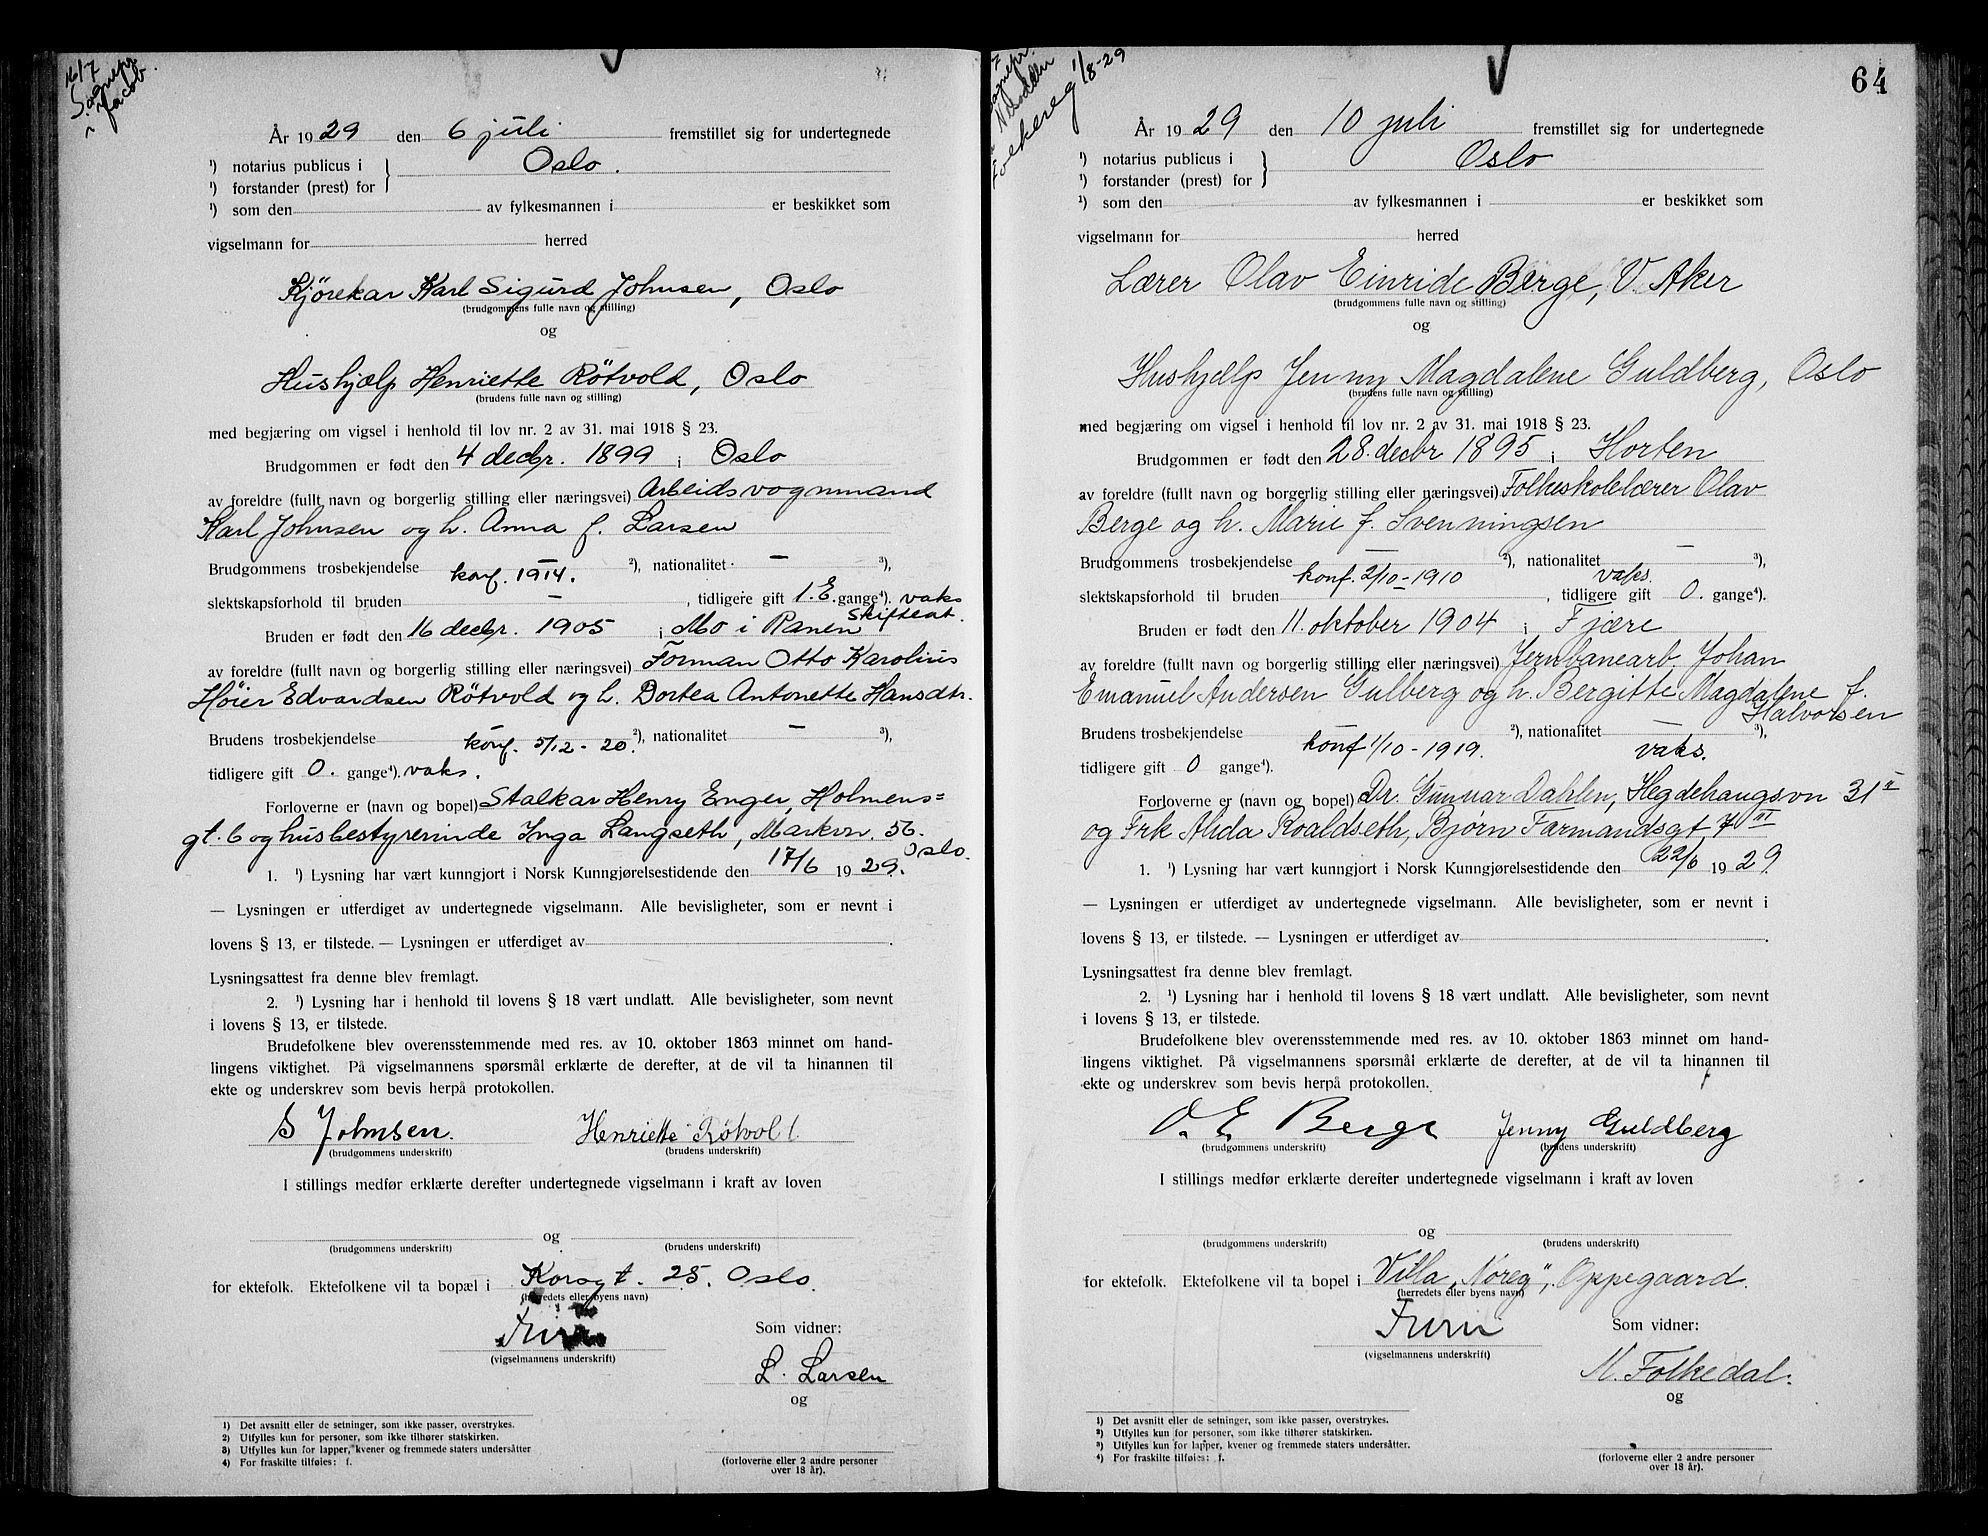 16/7
Sognepr.
i Jacob.
År 1929 den 6 juli fremstillet sig for undertegnede
¹) notarius publicus i Oslo.
¹) forstander (prest) for
¹) som den av fylkesmannen i er beskikket som
vigselmann for herred
Kjørekar Karl Sigurd Johnsen, Oslo
(brudgommens fulle navn og stilling)
og
Hushjælp Henriette Røtvold, Oslo
(brudens fulle navn og stilling)
med begjæring om vigsel i henhold til lov nr. 2 av 31. mai 1918 § 23.
Brudgommen er født den 4 decbr. 1899 i Oslo
av foreldre (fullt navn og borgerlig stilling eller næringsvei) Arbeidsvognmand
Karl Johnsen og h. Anna f. Larsen
Brudgommens trosbekjendelse konf. 1914. ²), nationalitet — ³),
slektskapsforhold til bruden — , tidligere gift 1. E. gange⁴). vaks
Skifteat.
Bruden er født den 16 decbr. 1905 i Mo i Ranen
av foreldre (fullt navn og borgerlig stilling eller næringsvei) Forman Otto Karolius
Høier Edvardsen Røtvold og h. Dortea Antonette Hansdtr.
Brudens trosbekjendelse konf. 5/12 - 20. ²), nationalitet — ³),
tidligere gift 0. gange⁴). vaks.
Forloverne er (navn og bopel) Stalkar Henry Enger, Holmens=
gt. 6 og husbestyrerinde Inga Langseth, Markvn. 56.
Oslo.
1. ¹) Lysning har vært kunngjort i Norsk Kunngjørelsestidende den 17/6 1929.
— Lysningen er utferdiget av undertegnede vigselmann. Alle bevisligheter, som er nevnt i
lovens § 13, er tilstede. — Lysningen er utferdiget av .
Lysningsattest fra denne blev fremlagt.
2. ¹) Lysning har i henhold til lovens § 18 vært undlatt. Alle bevisligheter, som nevnt
i lovens § 13, er tilstede.
Brudefolkene blev overensstemmende med res. av 10. oktober 1863 minnet om hand-
lingens viktighet. På vigselmannens spørsmål erklærte de derefter, at de vil ta hinannen til
ekte og underskrev som bevis herpå protokollen.
S Johnsen. Henriette Røtvold
(brudgommens underskrift) (brudens underskrift)
I stillings medfør erklærte derefter undertegnede vigselmann i kraft av loven
og
(brudgommens underskrift) (brudens underskrift)
for ektefolk. Ektefolkene vil ta bopæl i Korsgt. 25. Oslo.
(herredets eller byens navn)
Som vidner:
(vigselmannens underskrift)
L. Larsen
og
1) Det avsnitt eller de setninger, som ikke passer, overstrykes.
2) Utfylles kun for personer, som ikke tilhører statskirken.
3) Utfylles kun for lapper, kvener og fremmede staters undersåtter
4) For fraskilte tilføies: f.
(forloverne eller 2 andre personer
over 18 år).
64
Sognepr.
i Nesodden
Folkereg 1/8-29
År 1929 den 10 juli fremstillet sig for undertegnede
¹) notarius publicus i Oslo
¹) forstander (prest) for
¹) som den av fylkesmannen i er beskikket som
vigselmann for herred
Lærer Olav Einride Berge, V. Aker
(brudgommens fulle navn og stilling)
og
Hushjælp Jenny Magdalene Guldberg, Oslo
(brudens fulle navn og stilling)
med begjæring om vigsel i henhold til lov nr. 2 av 31. mai 1918 § 23.
Brudgommen er født den 28. decbr 1895 i Horten
av foreldre (fullt navn og borgerlig stilling eller næringsvei) Folkeskolelærer Olav
Berge og h. Marie f. Svenningsen
Brudgommens trosbekjendelse — ²), nationalitet — ³),
konf. 2/10-1910 vaks.
slektskapsforhold til bruden — , tidligere gift 0. gange⁴).
Bruden er født den 11. oktober 1904 i Fjære
av foreldre (fullt navn og borgerlig stilling eller næringsvei) Jernbanearb. Johan
Emanuel Andersen Gulberg og h. Bergitte Magdalene f.
Halvorsen
Brudens trosbekjendelse — ²), nationalitet — ³),
konf 1/10-1919. vaks.
tidligere gift 0 gange⁴).
Forloverne er (navn og bopel) Dr. Gunnar Dahlen, Hegdehaugsvn 31 II
og Frk Alida Roaldseth, Bjørn Farmandsgt. 7 III
1. ¹) Lysning har vært kunngjort i Norsk Kunngjørelsestidende den 22/6 1929.
— Lysningen er utferdiget av undertegnede vigselmann. Alle bevisligheter, som er nevnt i
lovens § 13, er tilstede. — Lysningen er utferdiget av .
Lysningsattest fra denne blev fremlagt.
2. ¹) Lysning har i henhold til lovens § 18 vært undlatt. Alle bevisligheter, som nevnt
i lovens § 13, er tilstede.
Brudefolkene blev overensstemmende med res. av 10. oktober 1863 minnet om hand-
lingens viktighet. På vigselmannens spørsmål erklærte de derefter, at de vil ta hinannen til
ekte og underskrev som bevis herpå protokollen.
O. E. Berge Jenny Guldberg
(brudgommens underskrift) (brudens underskrift)
I stillings medfør erklærte derefter undertegnede vigselmann i kraft av loven
og
(brudgommens underskrift) (brudens underskrift)
for ektefolk. Ektefolkene vil ta bopel i Villa „Nøreg", Oppegaard.
(herredets eller byens navn)
Som vidner:
(vigselmannens underskrift)
M. Folkedal.
og
1) Det avsnitt eller de setninger, som ikke passer, overstrykes.
2) Utfylles kun for personer, som ikke tilhører statskirken.
3) Utfylles kun for lapper, kvener og fremmede staters undersåtter.
4) For fraskilte tilføies: f.
(forloverne eller 2 andre personer
over 18 år).